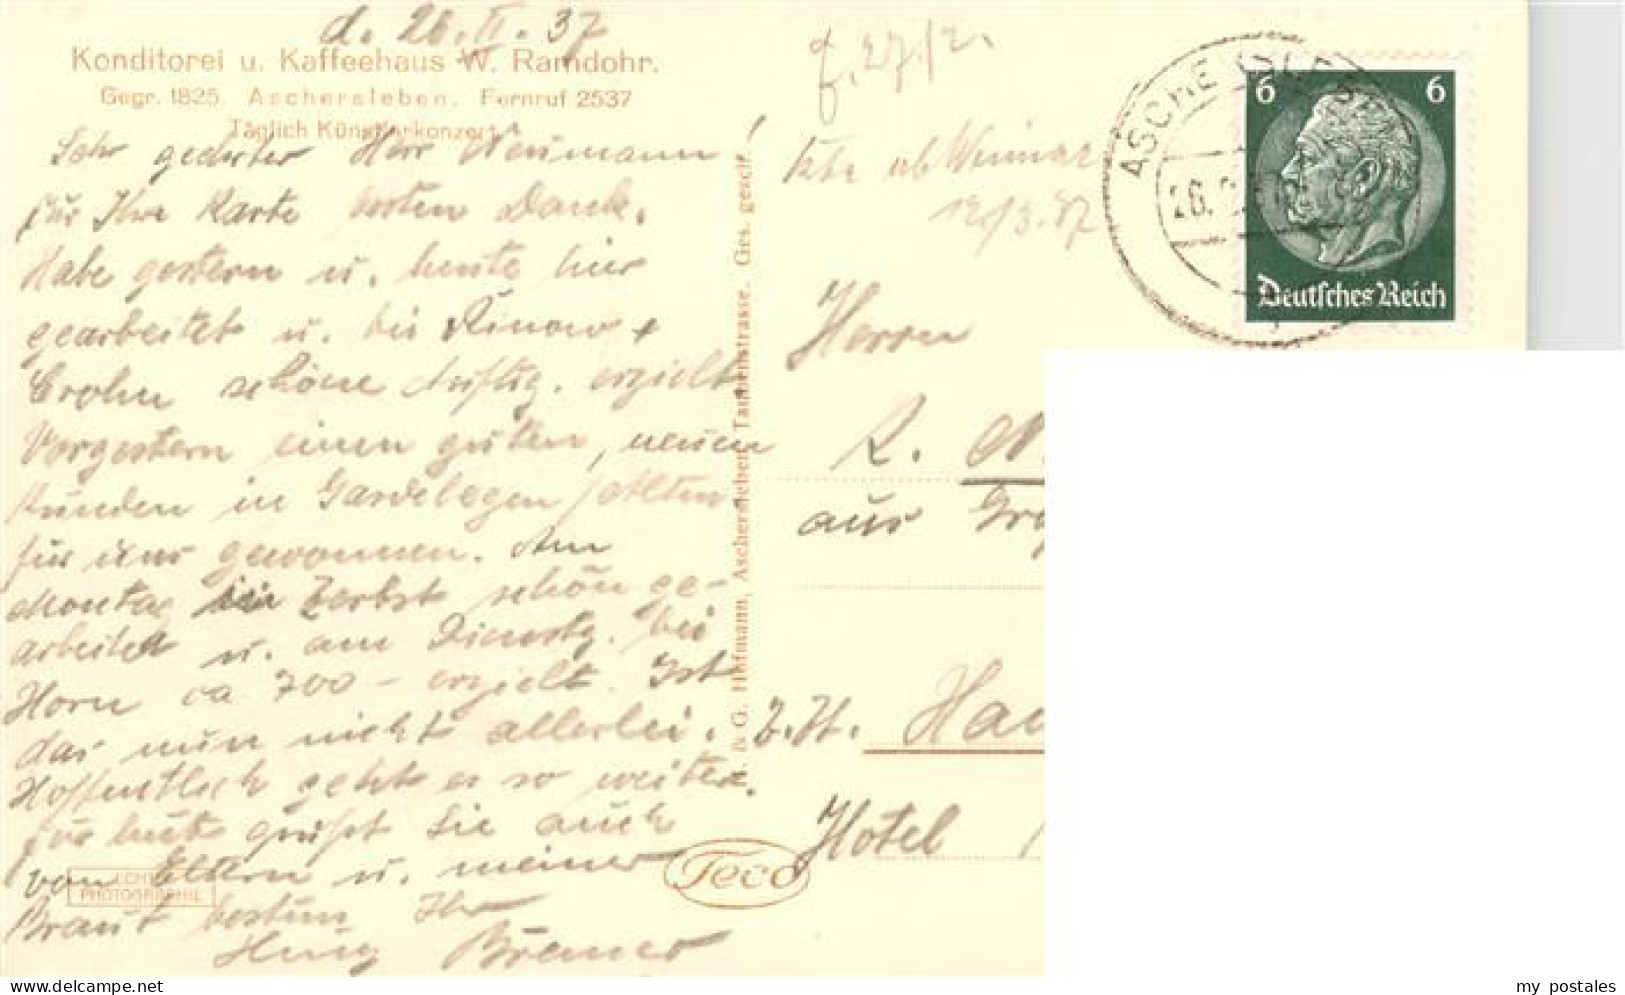 d. 26.II.37
Konditorei u. Kaffeehaus W. Ramdohr.
Gegr. 1825. Aschersleben. Fernruf 2537
Täglich Künstlerkonzert
Sehr geehrter Herr Neumann
für Ihre Karte besten Dank.
Habe gestern u. heute hier
gearbeitet u. bei
schöne Auftrg. erzielt.
Vorgestern einen guten, neuen
Kunden in Gardelegen
für uns gewonnen. Am
Montag in Zerbst schön ge-
arbeitet u. am Dienstg. bei
Horn ca 700 - erzielt. Ist
das nun nicht allerlei.
Hoffentlich geht es so weiter.
für heute grüßt Sie auch
von Eltern u. meiner
Braut bestens Ihr
Bremer
ECHTE
PHOTOGRAPHIE
& G. Hofmann, Aschersleben, Taubenstrasse. Ges. gesch.
Teco
f. 27./2.
ab Weimar
12./3.37
ASCHERSLEBEN
26. 2.
6 6
Deutsches Reich
Herrn
R. N
aus
z. Zt. Han
Hotel
my postales
my postales